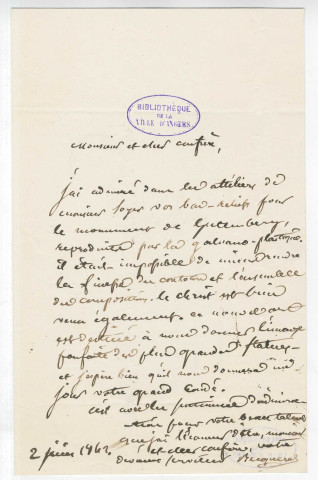 BIBLIOTHÈQUE
DE LA
VILLE D'ANGERS
Monsieur et cher confrère,
j'ai admiré dans les atteliers de
monsieur Soyer vos bas-reliefs pour
le monument de Guttemberg,
reproduits par la galvano-plastique.
il était impossible de mieux rendre
la finesse des contours et l'ensemble
des compositions. le christ est bien
venu également. ce nouvel art
est destiné à nous donner l'image
parfaite des plus grandes statues
et j'espère bien qu'il nous donnera un
jour votre grand Condé.
c'est avec les sentimens d'admira-
tion pour votre beau talent
que j'ai l'honneur d'être, monsieur
et cher confrère, votre
2 juin
dévoué serviteur Becquerel